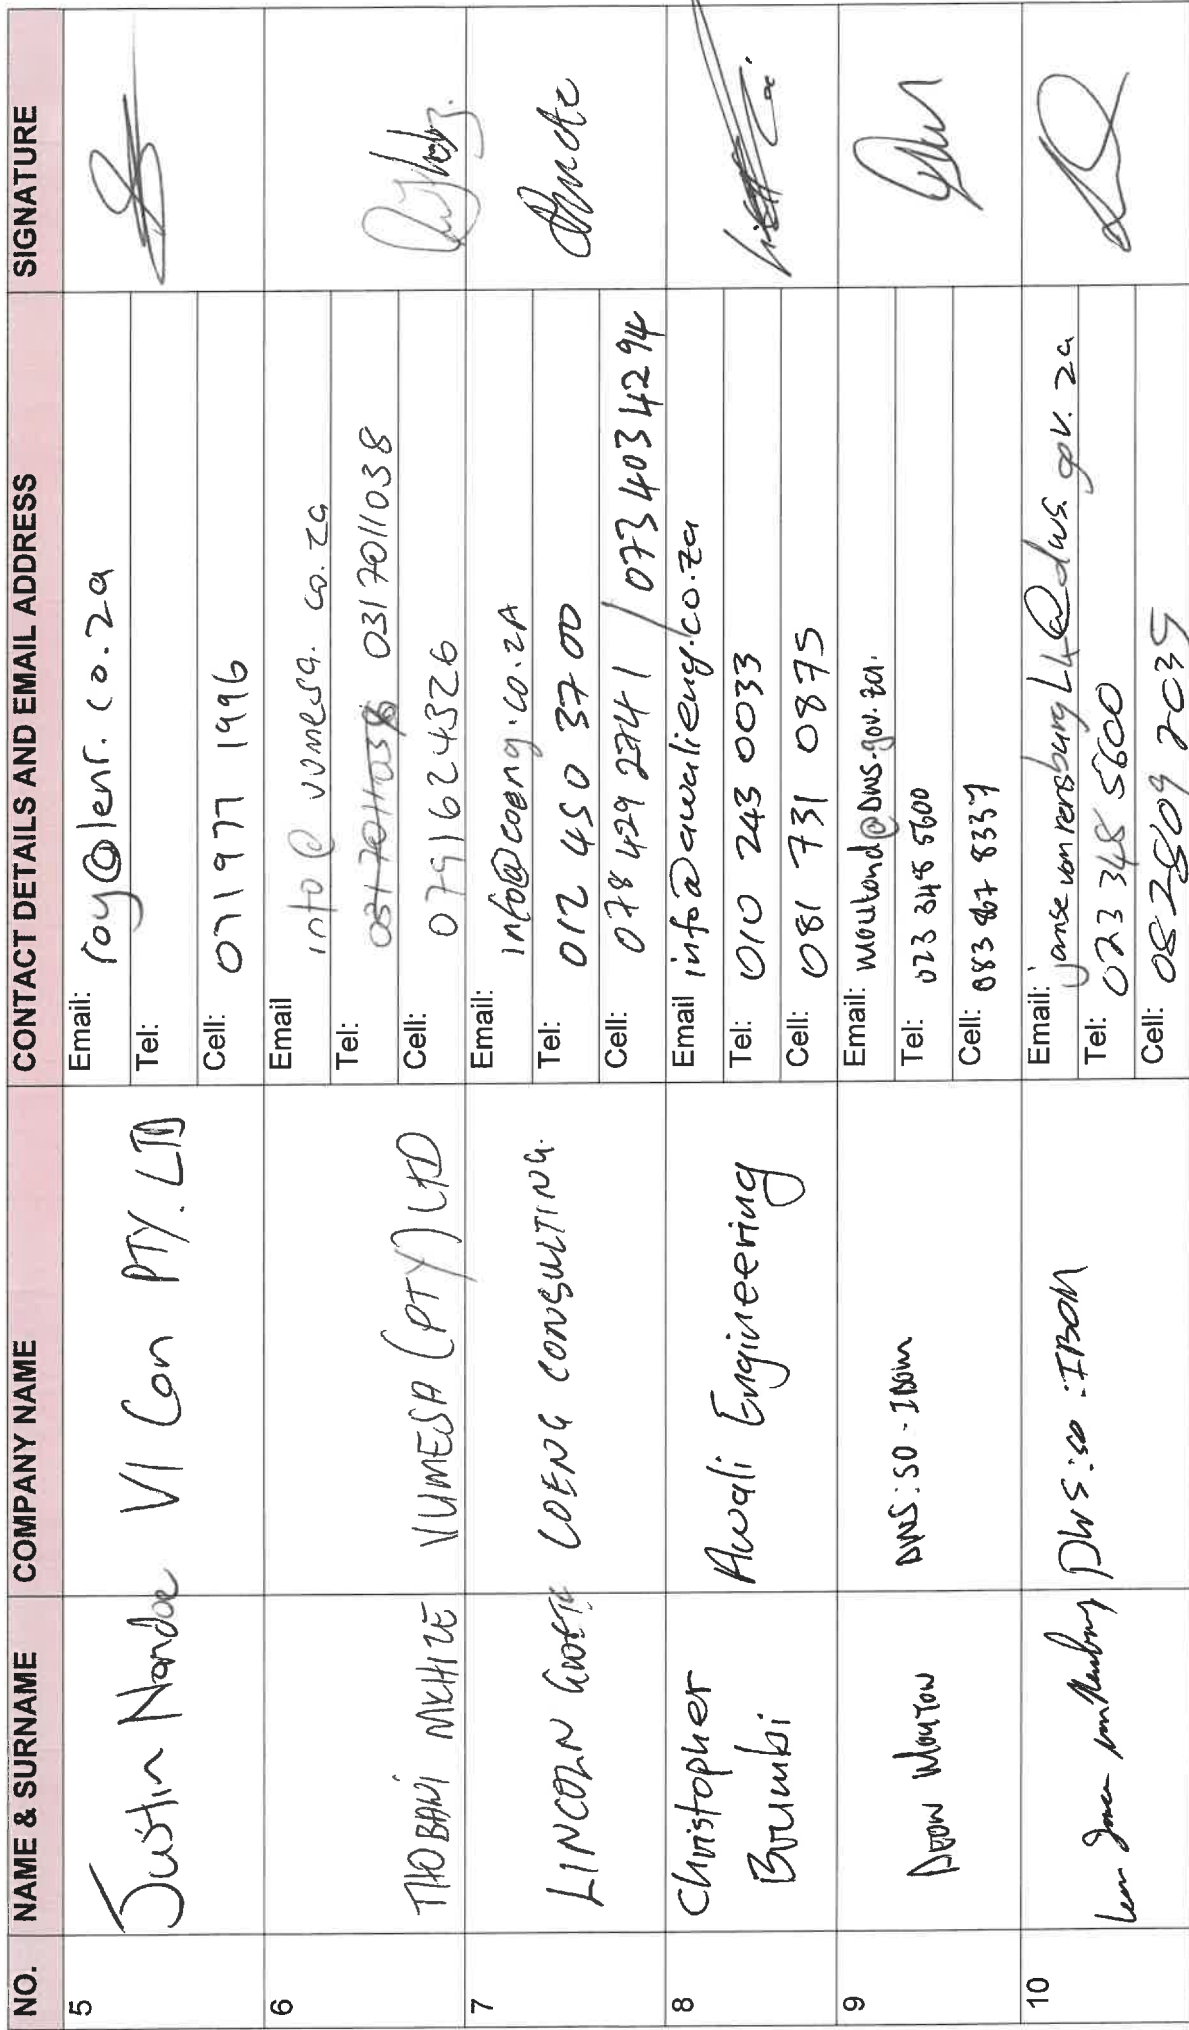 NO. NAME & SURNAME COMPANY NAME CONTACT DETAILS AND EMAIL ADDRESS SIGNATURE
5 Justin Nandoe VI Con PTY. LTD
Email: roy@lenr.co.za
Tel:
Cell: 071 977 1996
6 THOBANI MKHIZE VUMESA (PTY) LTD
Email info@vumesa.co.za
Tel: 0317011038 0317011038
Cell: 0791624326
7 LINCOLN COENG CONSULTING.
Email: info@coeng.co.zA
Tel: 012 450 3700
Cell: 078 429 2741 / 073 403 4294
8 Christopher
Bvumbi
Awali Engineering
Email info@awalieng.co.za
Tel: 010 243 0033
Cell: 081 731 0875
9 Mouton DWS:SO-IBOM
Email: moutond@DWS.gov.za.
Tel: 023 348 5600
Cell: 083 867 8337
10 Janse van Rensburg DWS:SO:IBOM
Email: janse van rensburg L4@dws.gov.za
Tel: 023 348 5600
Cell: 082 809 2035